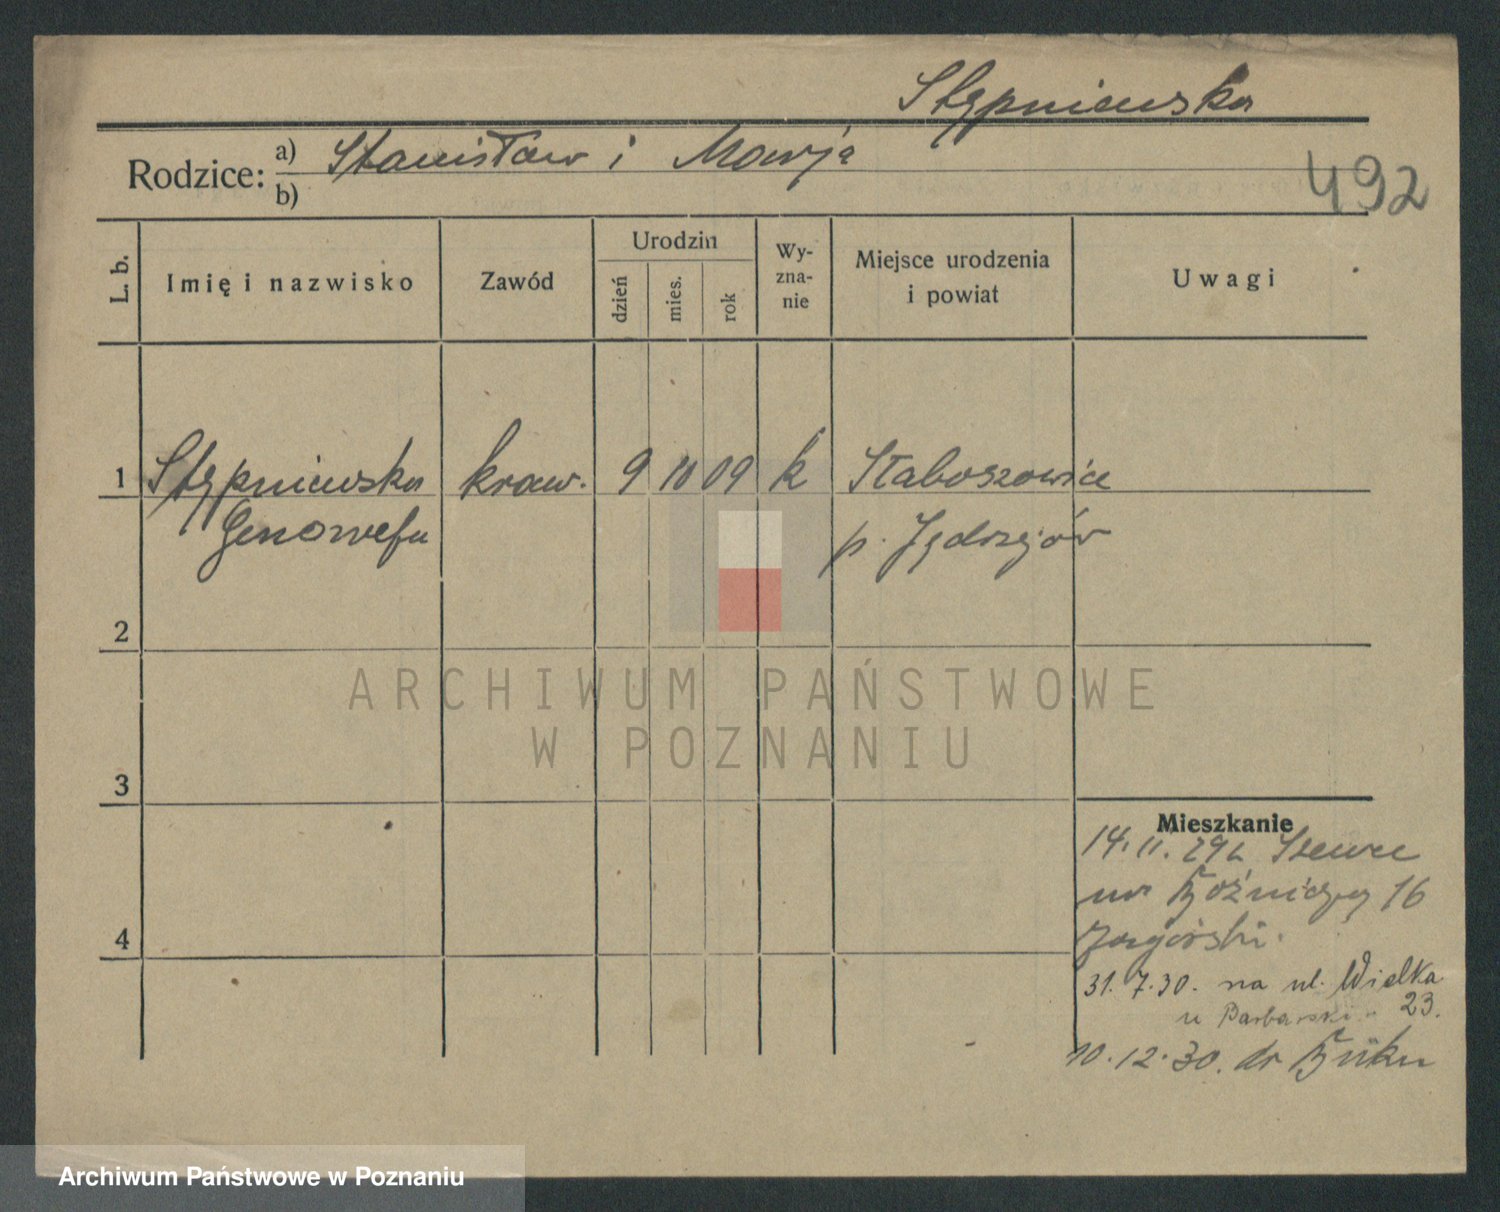 Stępniewska
Rodzice: a) Stanisław i Marja
b)
492
L. b.
Imię i nazwisko
Zawód
Urodzin
dzień
mies.
rok
Wy-
zna-
nie
Miejsce urodzenia
i powiat
Uwagi
1 Stępniewska kraw. 9 10 09 k Słaboszowice
Genowefa p. Jędrzejów
2
3
4
Mieszkanie
14. 11. 29 z
16
Zagórski.
31. 7. 30. na ul. Wielka
u Barbarski 23.
10. 12. 30. do Buku
ARCHIWUM PAŃSTWOWE
W POZNANIU
Archiwum Państwowe w Poznaniu